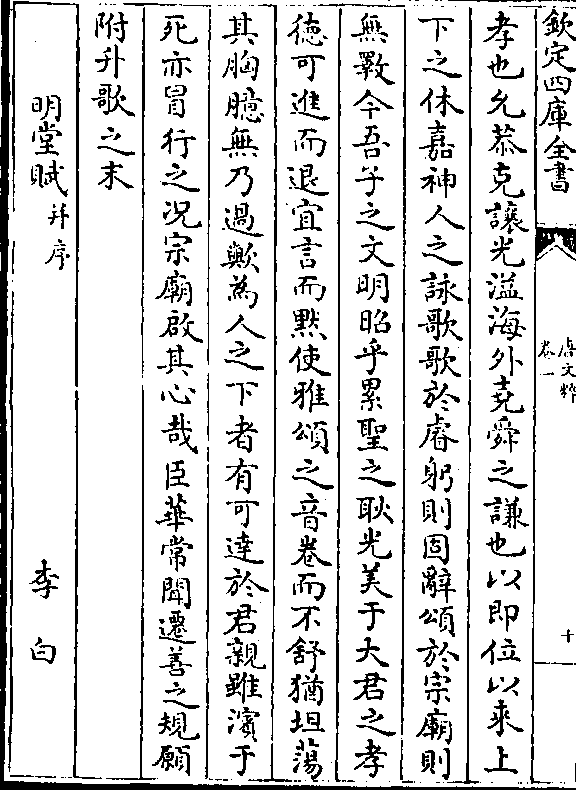 欽定四庫全書
唐文粹
卷一
十
孝也允恭克讓光溢海外堯舜之謙也以即位以來上
下之休嘉神人之詠歌歌於睿躬則固辭頌於宗廟則
無斁今吾子之文明昭乎累聖之耿光美于大君之孝
徳可進而退宜言而黙使雅頌之音卷而不舒猶坦蕩
其胸臆無乃過歟為人之下者有可達於君親雖濱于
死亦冒行之况宗廟啟其心哉臣華常聞遷善之規願
附升歌之末
明堂賦并序 李白